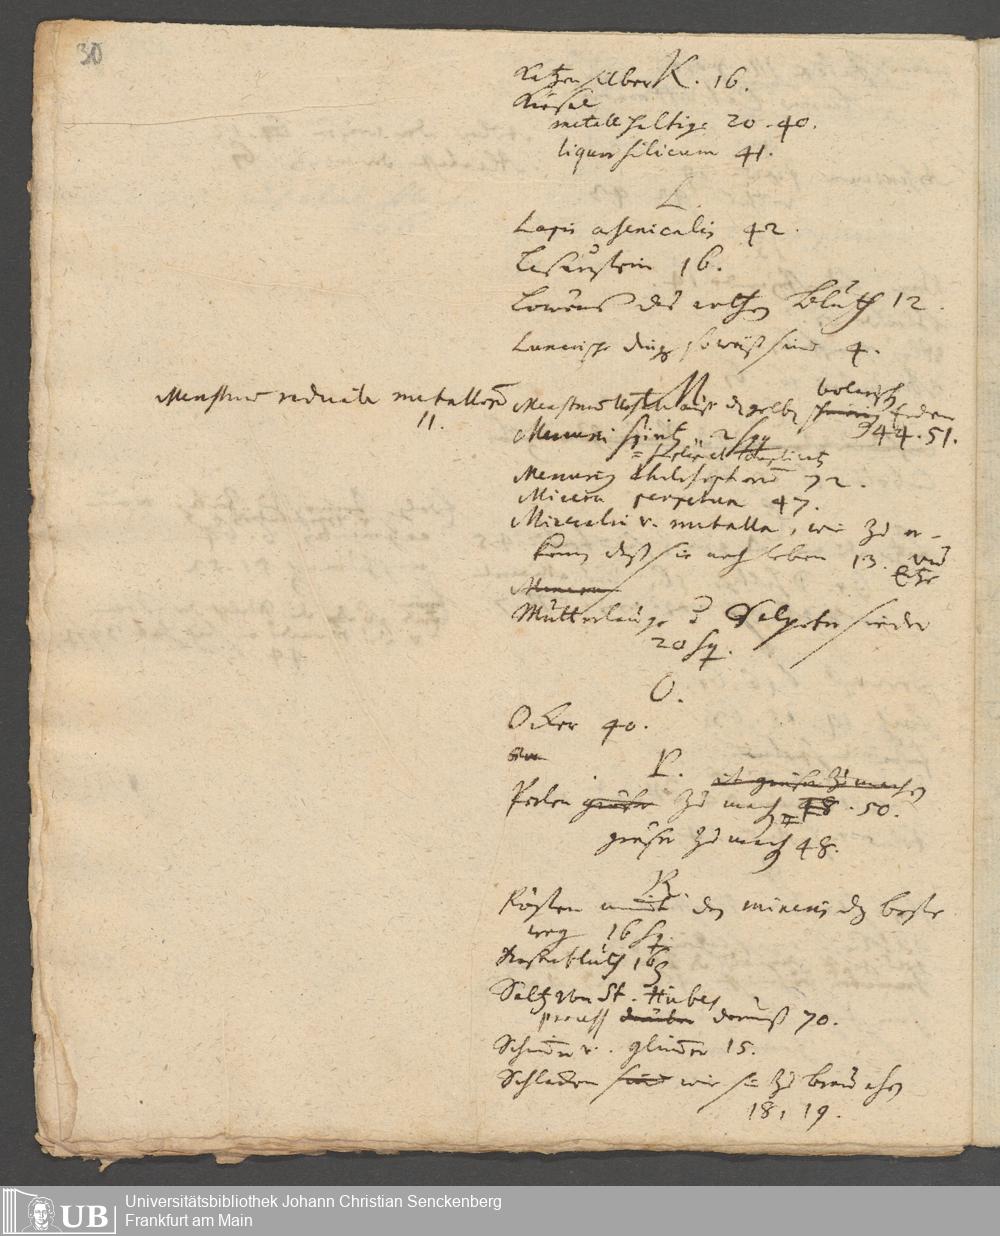 30
K.
Katzen silber 16.
Kiesel
metallhaltige 20. 40.
liquor silicum 41.
L.
Lapis arsenicalis 42.
Lasurstein 16.
Löwens des rothen Bluth 12.
Lunarische ding so weiß sind 4.
M
Menstruum reducibile metallorum
11.
Menstruum auß der gelben bolarisch Erden
44. 51.
Mercurii 2 sqq
Mercurius Philosophorum 72.
Minera perpetua 47.
Mineralia v. metalla, wie zu er-
kennen daß sie noch leben 13. und
Ertze
Minera
Mutterlauge v. Salpeter sieder
20 sq.
O.
Ocker 40.
P.
Perlen größer zu machen 48. 50.
größer zu machen 48.
R.
Rösten der mineris der beste
weg 16 sq.
Rosenblüth 16
S
Saltz von St. Hubes
process darüber darauß 70.
v. glimmer 15.
Schlacken sind wie sie zu brauchen
18, 19.
UB
Universitätsbibliothek Johann Christian Senckenberg
Frankfurt am Main